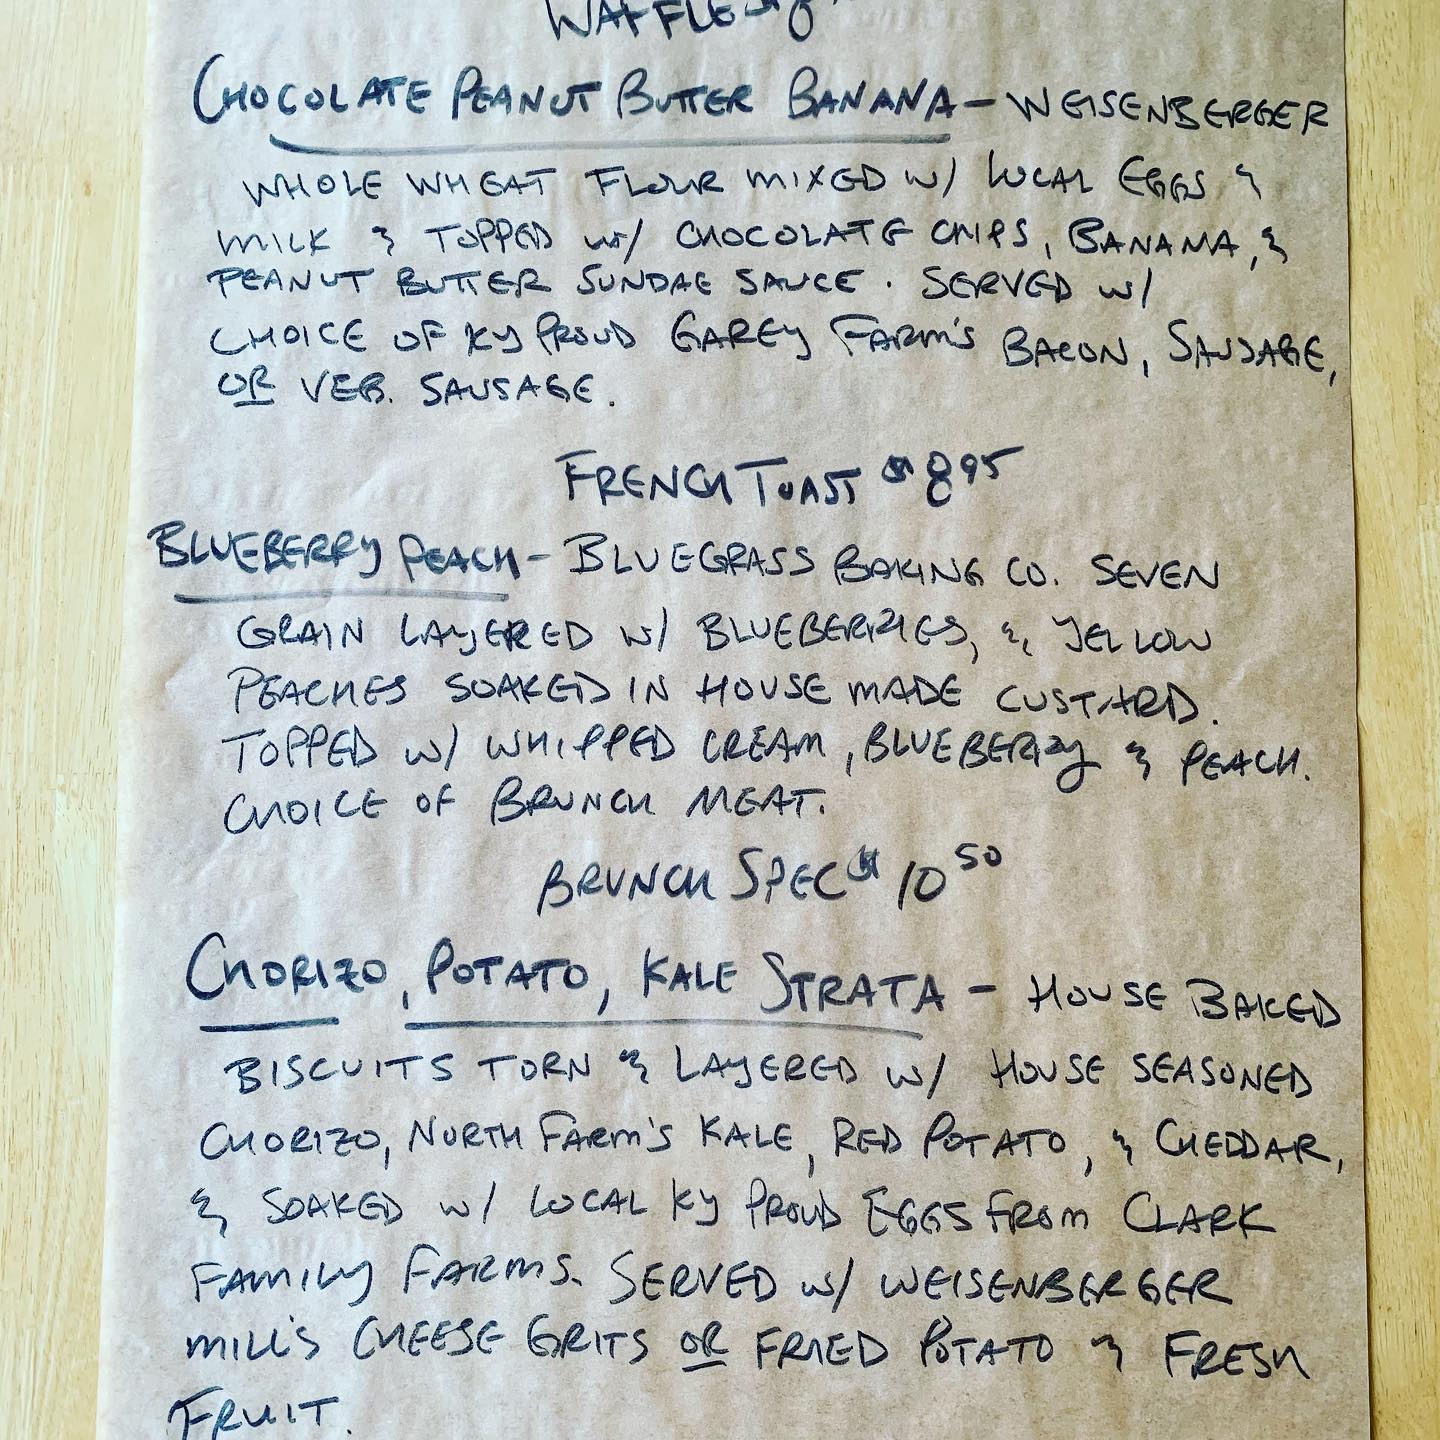 WAFFLE
CHOCOLATE PEANUT BUTTER BANANA - WEISENBERGER
WHOLE WHEAT FLOUR MIXED W/ LOCAL EGGS &
MILK & TOPPED W/ CHOCOLATE CHIPS, BANANA, &
PEANUT BUTTER SUNDAE SAUCE. SERVED W/
CHOICE OF KY PROUD GAREY FARM'S BACON, SAUSAGE,
OR VEG. SAUSAGE.
FRENCH TOAST $8.95
BLUEBERRY PEACH - BLUEGRASS BAKING CO. SEVEN
GRAIN LAYERED W/ BLUEBERRIES, & YELLOW
PEACHES SOAKED IN HOUSE MADE CUSTARD.
TOPPED W/ WHIPPED CREAM, BLUEBERRY & PEACH.
CHOICE OF BRUNCH MEAT.
BRUNCH SPEC $10.50
CHORIZO, POTATO, KALE STRATA - HOUSE BAKED
BISCUITS TORN & LAYERED W/ HOUSE SEASONED
CHORIZO, NORTH FARM'S KALE, RED POTATO, & CHEDDAR,
& SOAKED W/ LOCAL KY PROUD EGGS FROM CLARK
FAMILY FARMS. SERVED W/ WEISENBERGER
MILL'S CHEESE GRITS OR FRIED POTATO & FRESH
FRUIT.